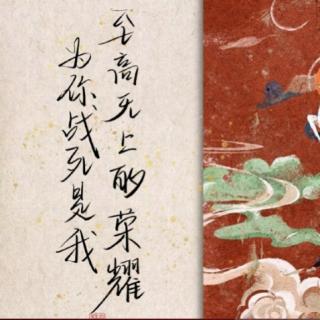 为你战死是我
至高无上的荣耀